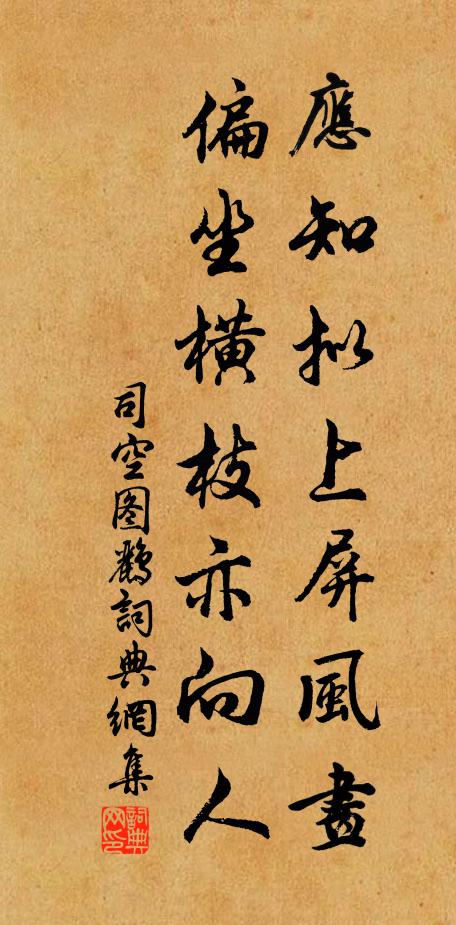 應知拟上屏風畫
偏坐橫枝亦向人
司空图鹊詞典網集
詞典网印